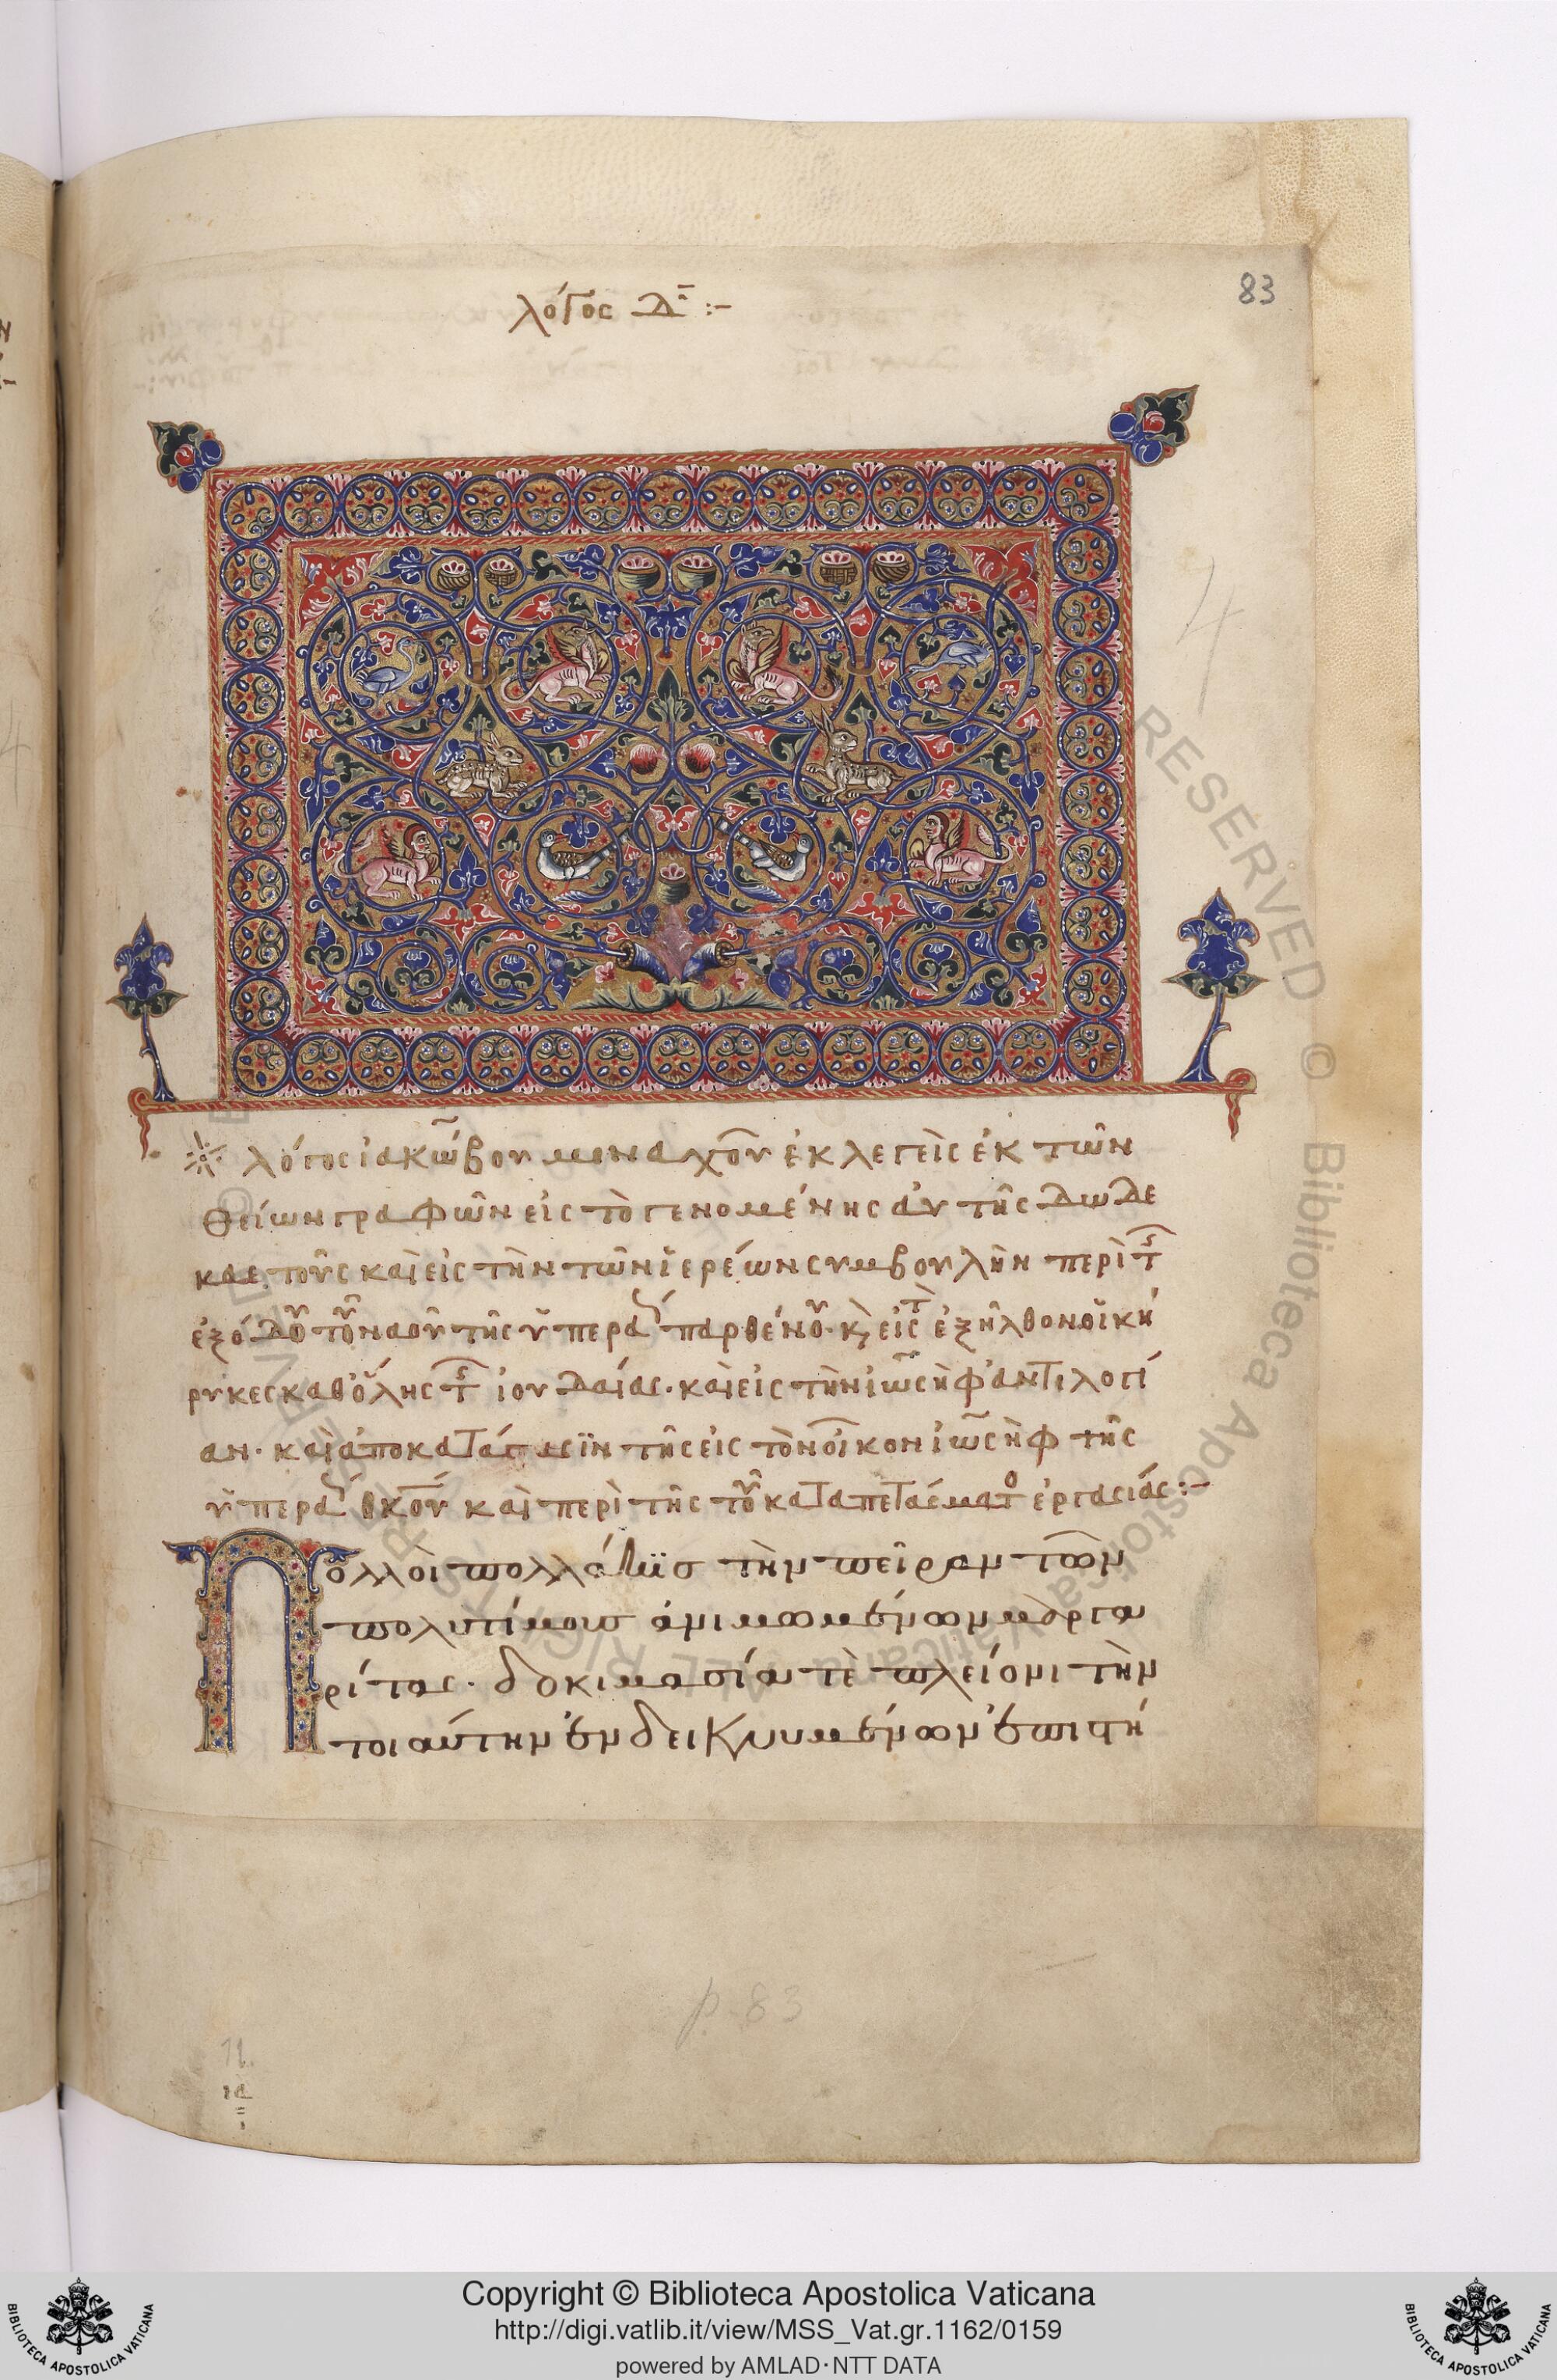 λόγος Δ̄ :–
83
4
λόγος ἰακώβου μοναχοῦ ἐκλεγεὶς ἐκ τῶν
θείων γραφῶν εἰς τὸ γενομένης αὐτῆς δωδε
καετοῦς καὶ εἰς τὴν τῶν ἱερέων συμβουλὴν περὶ τ
ἐξόδου τοῦ ναοῦ τῆς ὑπερα παρθένου· κ, εἰς τ ἐξῆλθον οἱ κή
ρυκες καθ' ὅλης τ ἰουδαίας· καὶ εἰς τὴν ἰωσὴφ ἀντιλογί
αν· καὶ ἀποκατάστασϊν τῆς εἰς τὸν οἶκον ἰωσὴφ τῆς
ὑπερα θκου καὶ περὶ τῆς τοῦ καταπετάσματο ἐργασίας :–
Πολλοὶ πολλάκϊς τὴν πεῖραν τῶν
πολυτίμους ἀνιμωμένων μαργα
ρίτας· δοκιμασία τὲ πλείονι τὴν
τοιαύτην ἐνδεικνυμένων ἐπιστή
p. 83
11
ια
RIGHTS RESERVED © Biblioteca Apostolica Vaticana ALL
Copyright © Biblioteca Apostolica Vaticana
http://digi.vatlib.it/view/MSS_Vat.gr.1162/0159
powered by AMLAD·NTT DATA
BIBLIOTECA APOSTOLICA VATICANA
BIBLIOTECA APOSTOLICA VATICANA